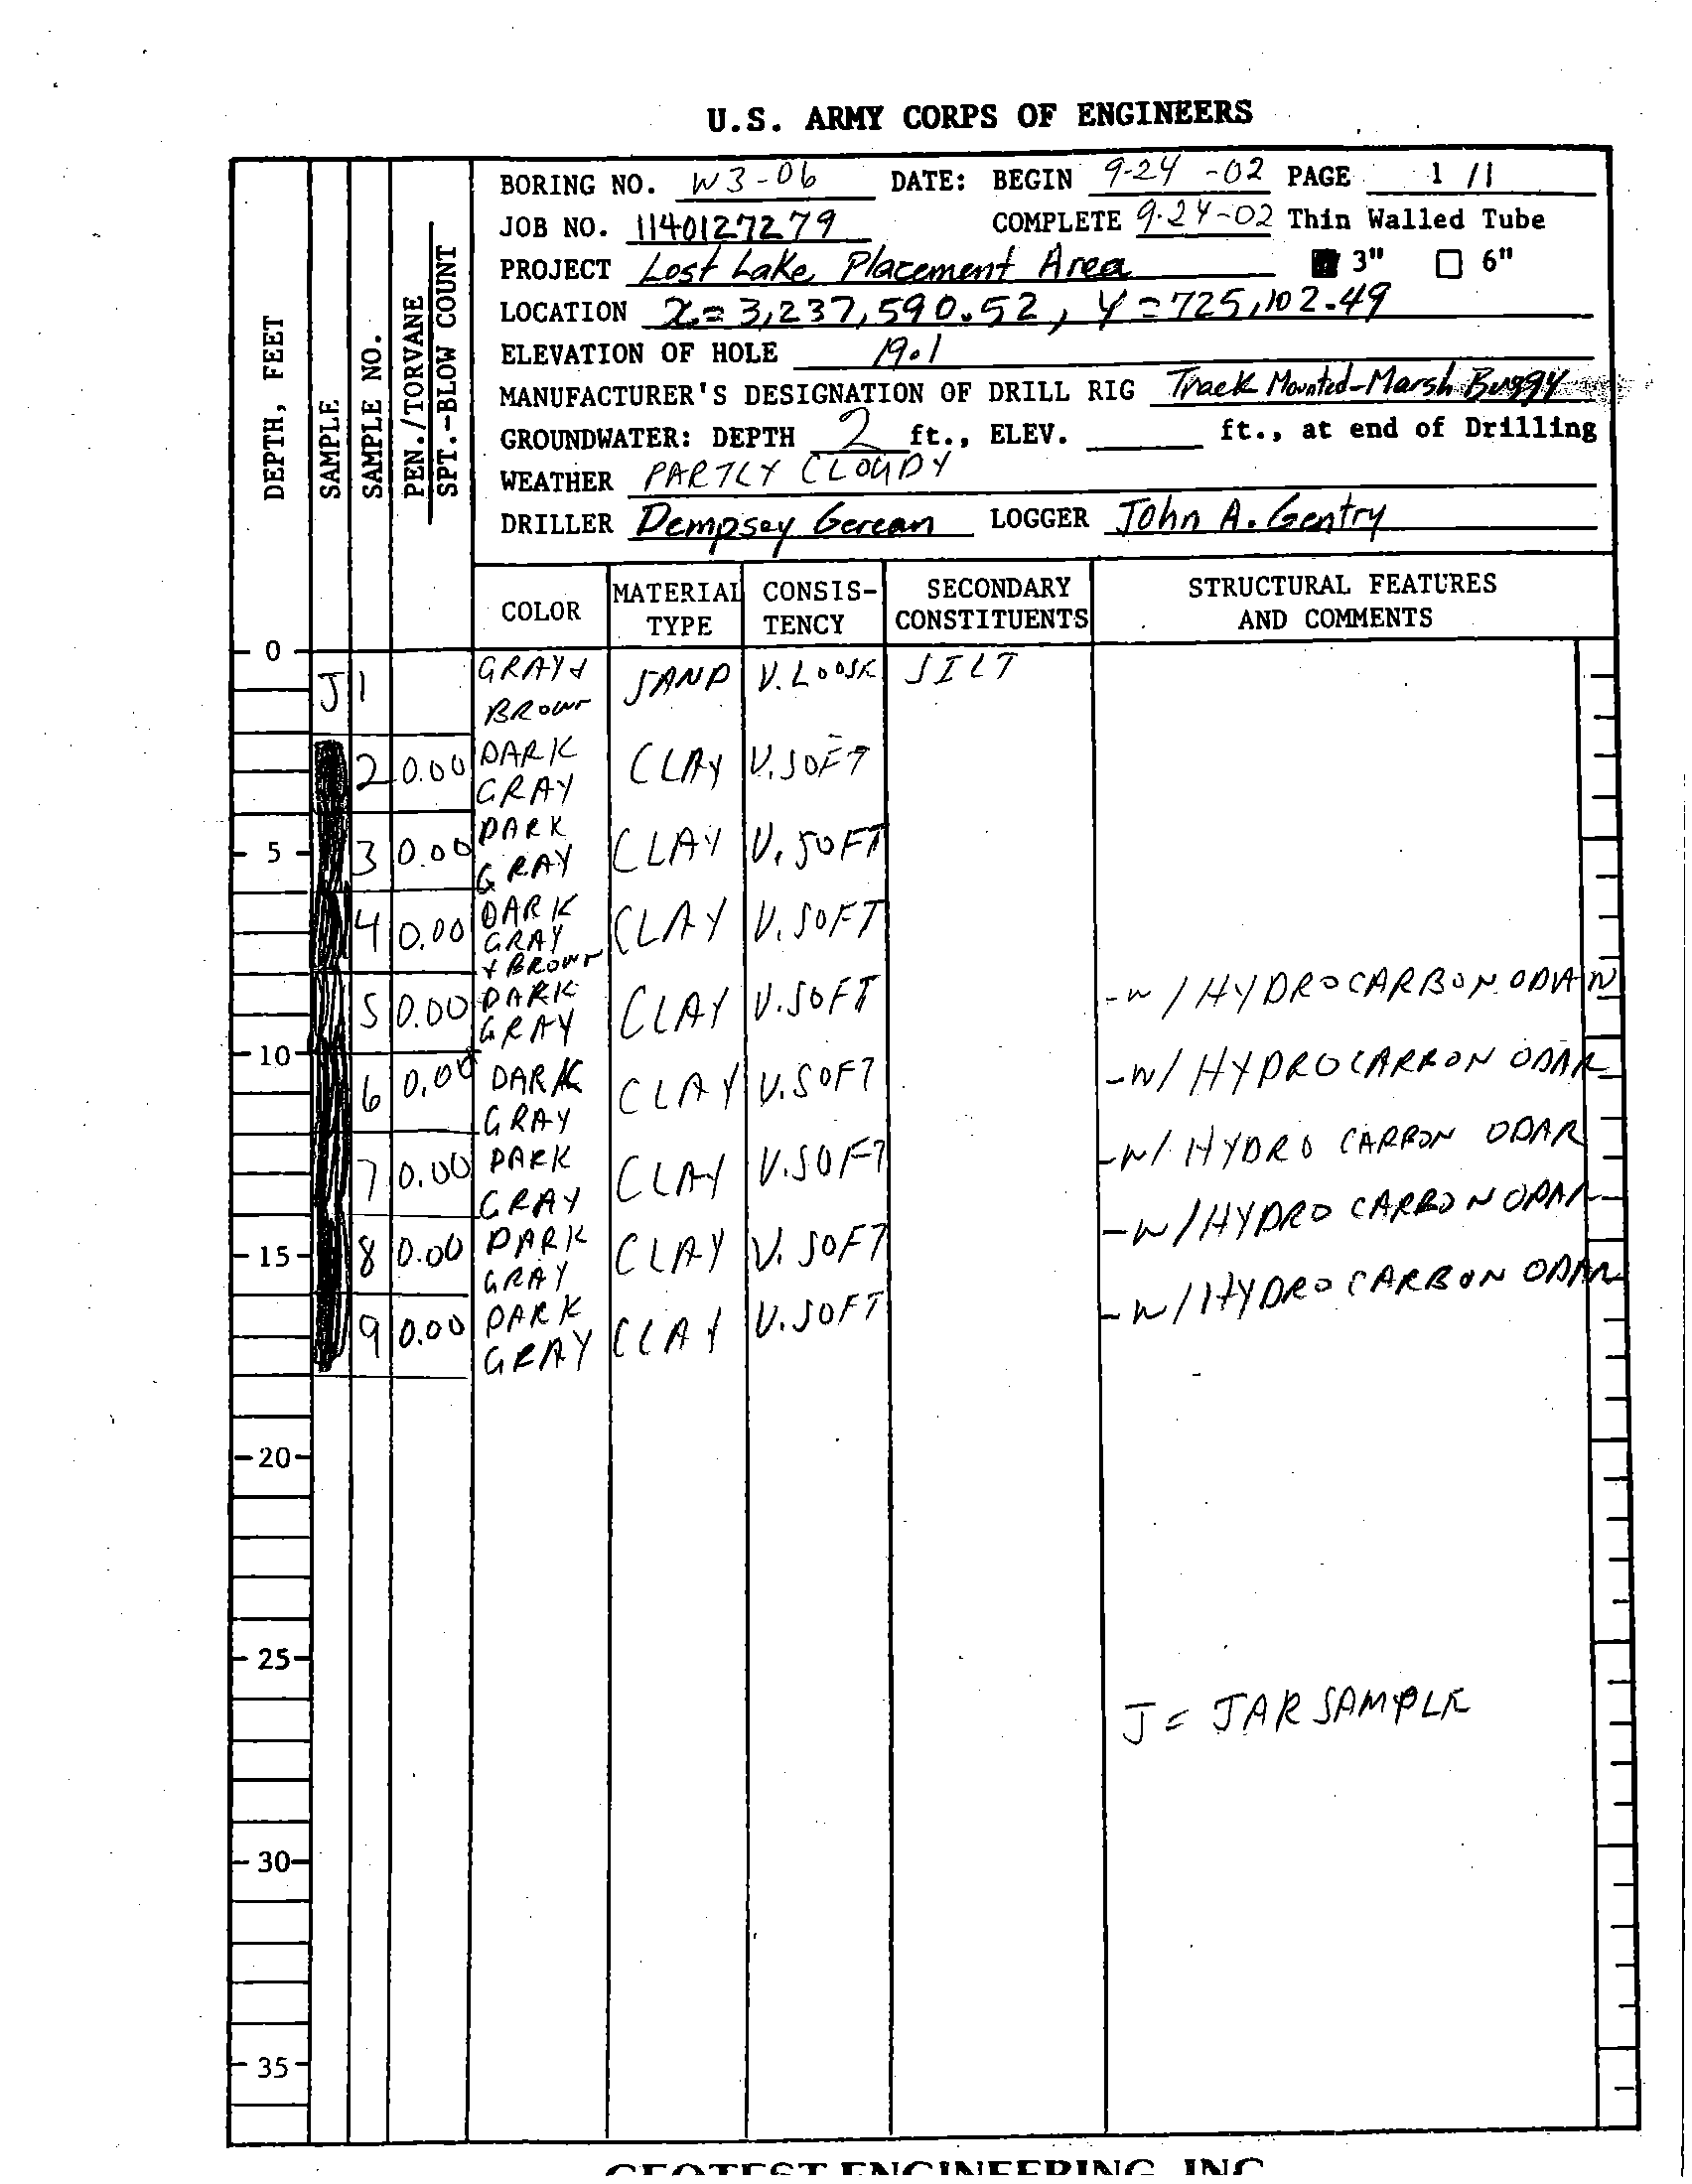 U.S. ARMY CORPS OF ENGINEERS
BORING NO. W3-06 DATE: BEGIN 9-24-02 PAGE 1/1
JOB NO. 1140127279 COMPLETE 9-24-02 Thin Walled Tube
PROJECT Lost Lake Placement Area 3" 6"
LOCATION X=3,237,590.52, Y=725,102.49
ELEVATION OF HOLE 19.1
MANUFACTURER'S DESIGNATION OF DRILL RIG Track Mounted-Marsh Buggy
GROUNDWATER: DEPTH 2 ft., ELEV. ft., at end of Drilling
WEATHER PARTLY CLOUDY
DRILLER Dempsey Gerean LOGGER John A. Gentry
DEPTH, FEET
SAMPLE
SAMPLE NO.
PEN./TORVANE
SPT.-BLOW COUNT
COLOR MATERIAL TYPE CONSIS-TENCY SECONDARY CONSTITUENTS STRUCTURAL FEATURES AND COMMENTS
0
J 1 GRAY & BROWN SAND V. LOOSE SILT
2 0.00 DARK GRAY CLAY V. SOFT
5
3 0.00 DARK GRAY CLAY V. SOFT
4 0.00 DARK GRAY & BROWN CLAY V. SOFT
5 0.00 DARK GRAY CLAY V. SOFT -W/HYDROCARBON
10
6 0.00 DARK GRAY CLAY V. SOFT -W/HYDROCARBON ODAR
7 0.00 DARK GRAY CLAY V. SOFT -W/HYDRO CARBON ODAR
15
8 0.00 DARK GRAY CLAY V. SOFT -W/HYDRO CARBON ODAR
9 0.00 DARK GRAY CLAY V. SOFT -W/HYDRO CARBON ODAR
20
25
J = JAR SAMPLE
30
35
GEOTEST ENGINEERING, INC